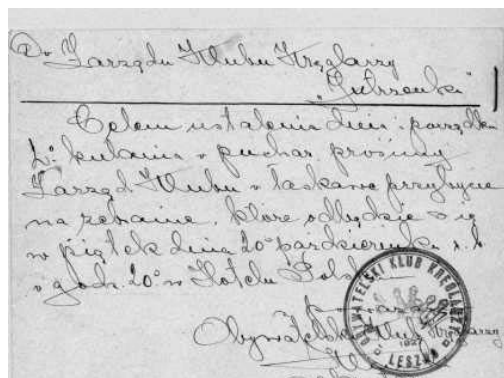 Do Zarządu Klubu Kręglarzy
„Jutrzenka"
Celem ustalenia dnia i porządku
kulania o puchar prosimy
Zarząd Klubu o łaskawe przybycie
na zebranie, które odbędzie się
w piątek dnia 20 października r. b.
o godz. 20° w Hotelu Polskim
Obywatelski Klub Kręglarzy
OBYWATELSKI KLUB KRĘGLARZY
LESZNO